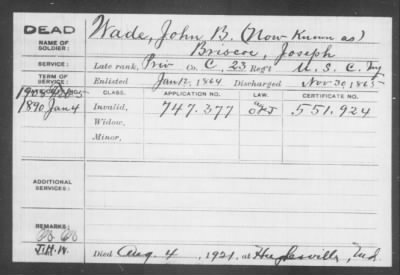 DEAD
NAME OF SOLDIER:
Wade, John B. (Now Known as)
Briscoe, Joseph
SERVICE:
Late rank, Priv Co. C, 23 Reg't U. S. C. Inf
TERM OF SERVICE:
Enlisted Jan 12, 1864 Discharged Nov 30, 1865
CLASS. APPLICATION NO. LAW. CERTIFICATE NO.
1890 Jan 4 Invalid, 747.377 551.924
Widow,
Minor,
ADDITIONAL SERVICES:
REMARKS:
J.H.W.
Died Aug. 4, 1921, at Hughesville, Md.